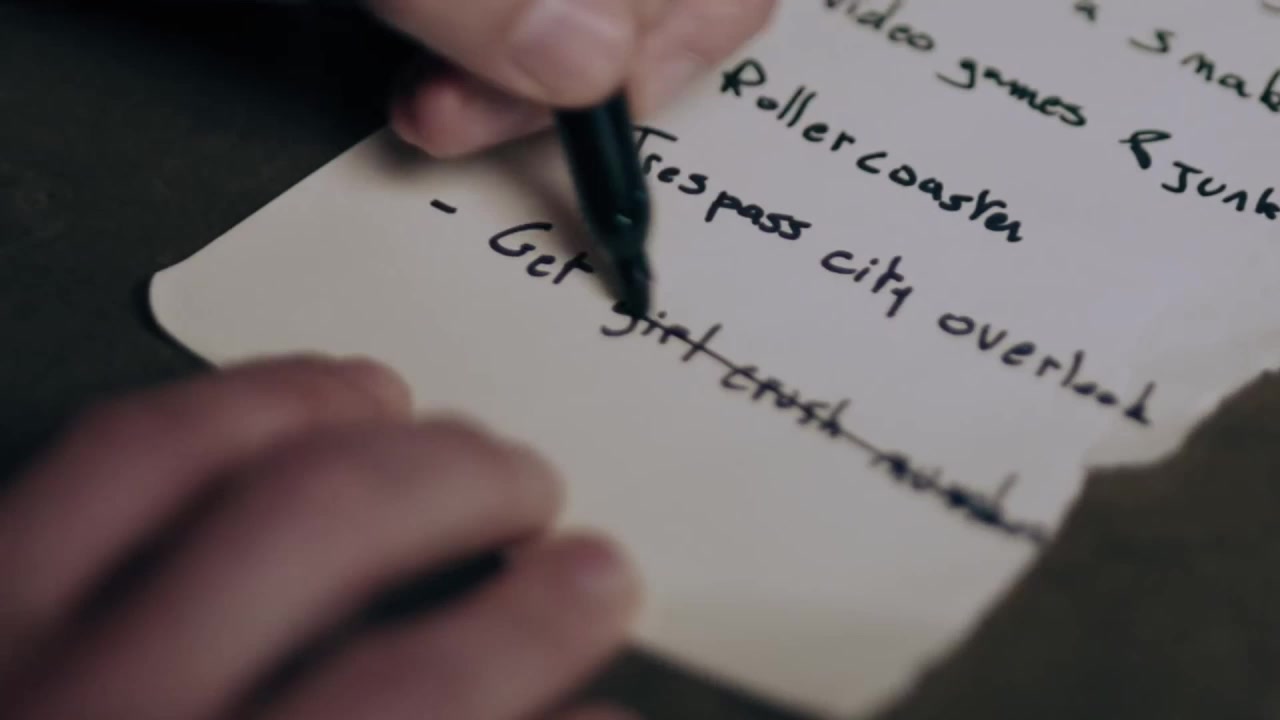 a snake
video games & junk
Rollercoaster
Trespass city overlook
- Get girl crush